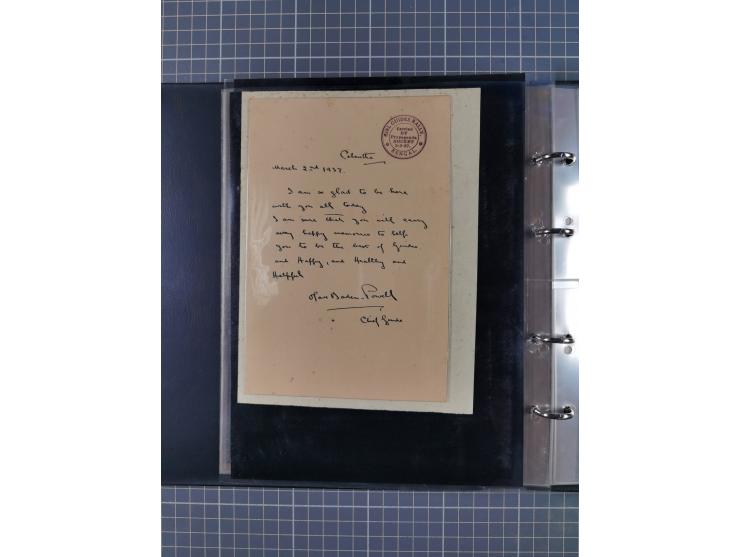 GIRL GUIDES RALLY.
Carried
BY
Propaganda
ROCKET
2-3-37.
BENGAL
Calcutta
March 2nd 1937.
I am so glad to be here
with you all today
I am sure that you will carry
away happy memories to help
you to be the best of Guides
and Happy, and Healthy and
Helpful
Olave Baden-Powell
Chief Guide